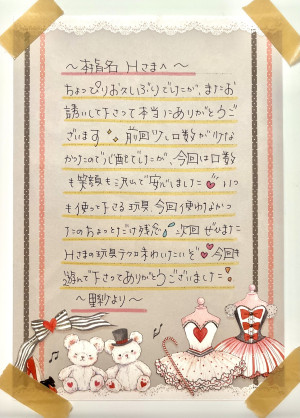 ～本指名 Hさまへ～
ちょっぴりお久しぶりでしたが、またお
誘いして下さって本当にありがとうご
ざいます 前回少し口数が少な
かったので心配でしたが、今回は口数
も笑顔も沢山で安心しました いつ
も使って下さる玩具、今回使わなかっ
たのちょっとだけ残念 次回ぜひまた
Hさまの玩具テクを味わいたいです 今回も
遊んで下さってありがとうございました！